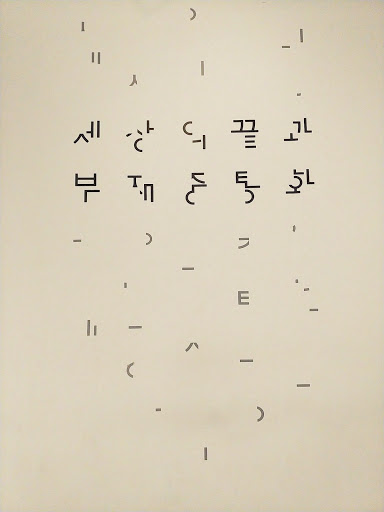 세상의끝과
부재중통화